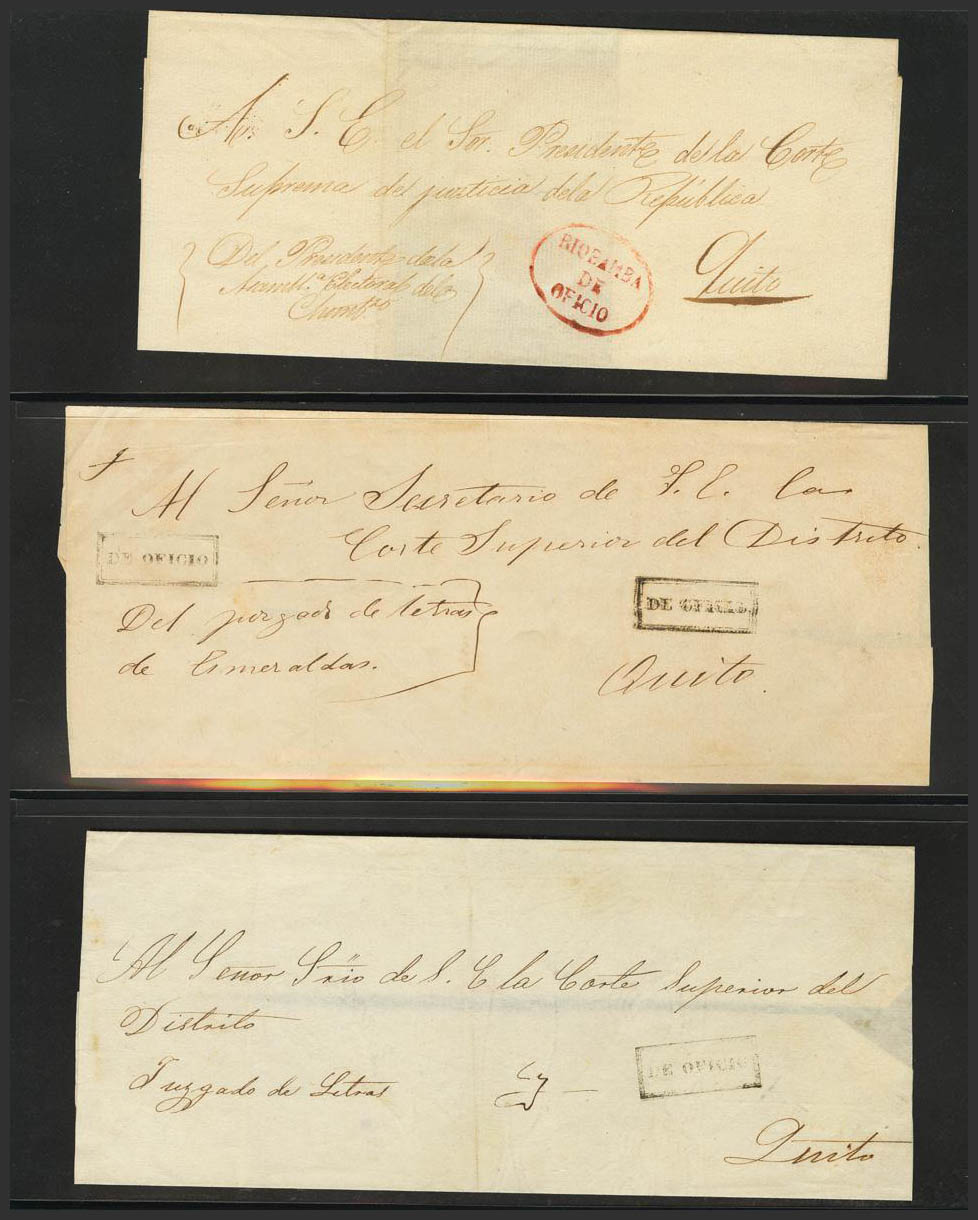 A S. E. el Sor. Presidente de la Corte
Suprema de justicia de la República
Del Presidente de la
Asamb.ª Electoral de
Chimb.zo
RIOBAMBA
DE
OFICIO
Quito
Al Señor Secretario de S. E. la
Corte Superior del Distrito.
DE OFICIO
Del juzgado de letras
de Esmeraldas.
DE OFICIO
Quito.
Al Señor Srio de S. E la Corte Superior del
Distrito
Juzgado de Letras
DE OFICIO
Quito